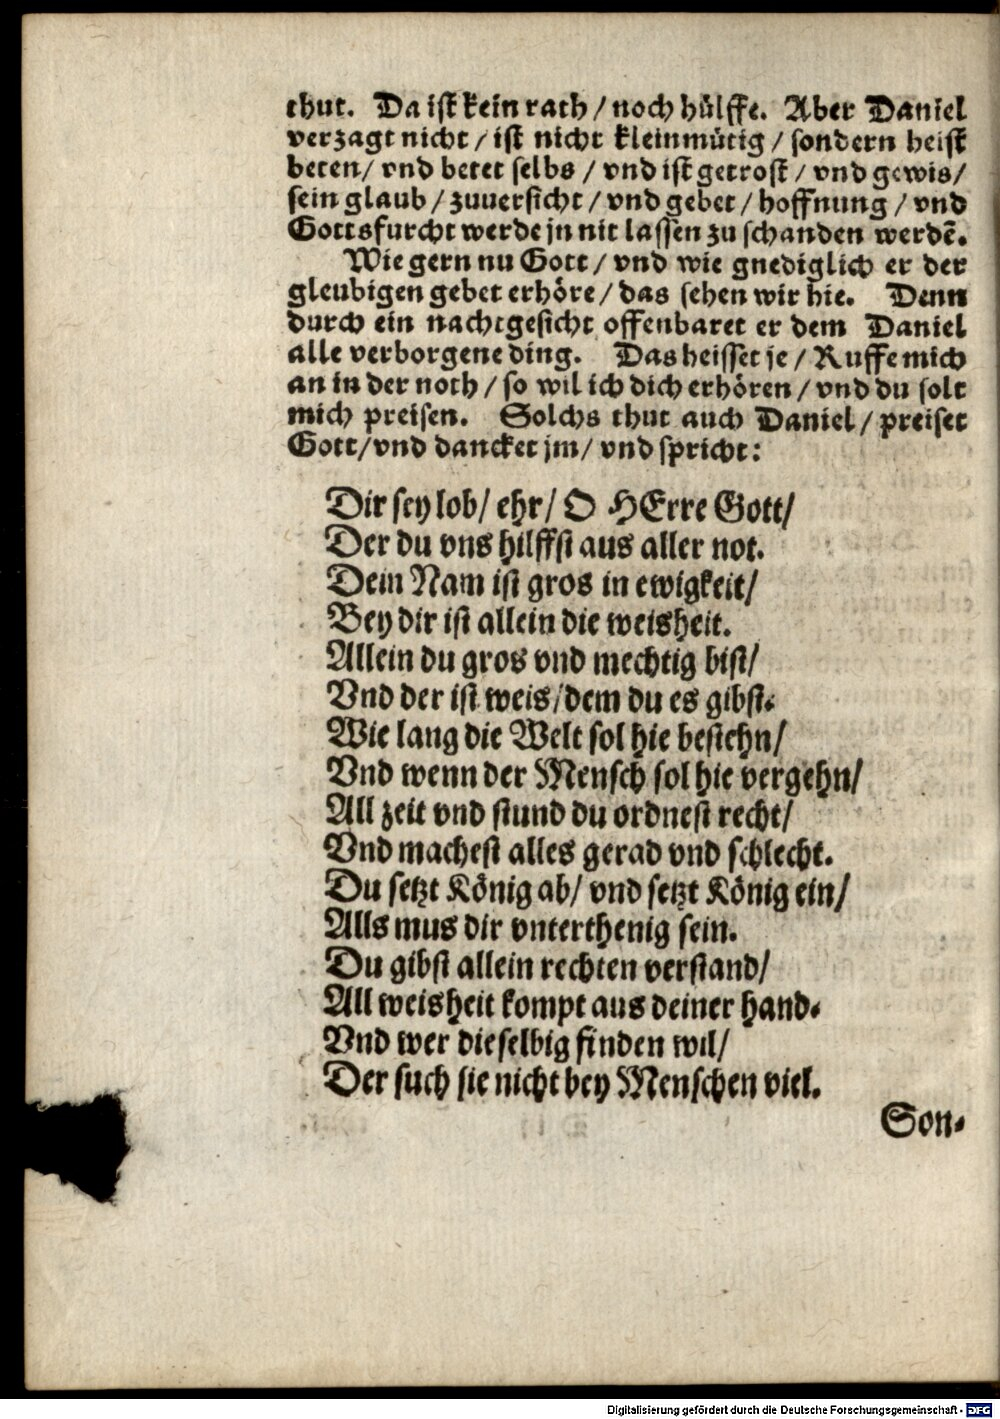 thut. Da ist kein rath / noch hülffe. Aber Daniel
verzagt nicht / ist nicht kleinmütig / sondern heist
beten / vnd betet selbs / vnd ist getrost / vnd gewis /
sein glaub / zuuersicht / vnd gebet / hoffnung / vnd
Gottsfurcht werde jn nit lassen zu schanden werdē.
Wie gern nu Gott / vnd wie gnediglich er der
gleubigen gebet erhöre / das sehen wir hie. Denn
durch ein nachtgesicht offenbaret er dem Daniel
alle verborgene ding. Das heisset je / Ruffe mich
an in der noth / so wil ich dich erhören / vnd du solt
mich preisen. Solchs thut auch Daniel / preiset
Gott / vnd dancket jm / vnd spricht:
Dir sey lob / ehr / O HErre Gott /
Der du vns hilffst aus aller not.
Dein Nam ist gros in ewigkeit /
Bey dir ist allein die weisheit.
Allein du gros vnd mechtig bist /
Vnd der ist weis / dem du es gibst.
Wie lang die Welt sol hie bestehn /
Vnd wenn der Mensch sol hie vergehn /
All zeit vnd stund du ordnest recht /
Vnd machest alles gerad vnd schlecht.
Du setzt König ab / vnd setzt König ein /
Alls mus dir vnterthenig sein.
Du gibst allein rechten verstand /
All weisheit kompt aus deiner hand.
Vnd wer dieselbig finden wil /
Der such sie nicht bey Menschen viel.
Son-
Digitalisierung gefördert durch die Deutsche Forschungsgemeinschaft - DFG